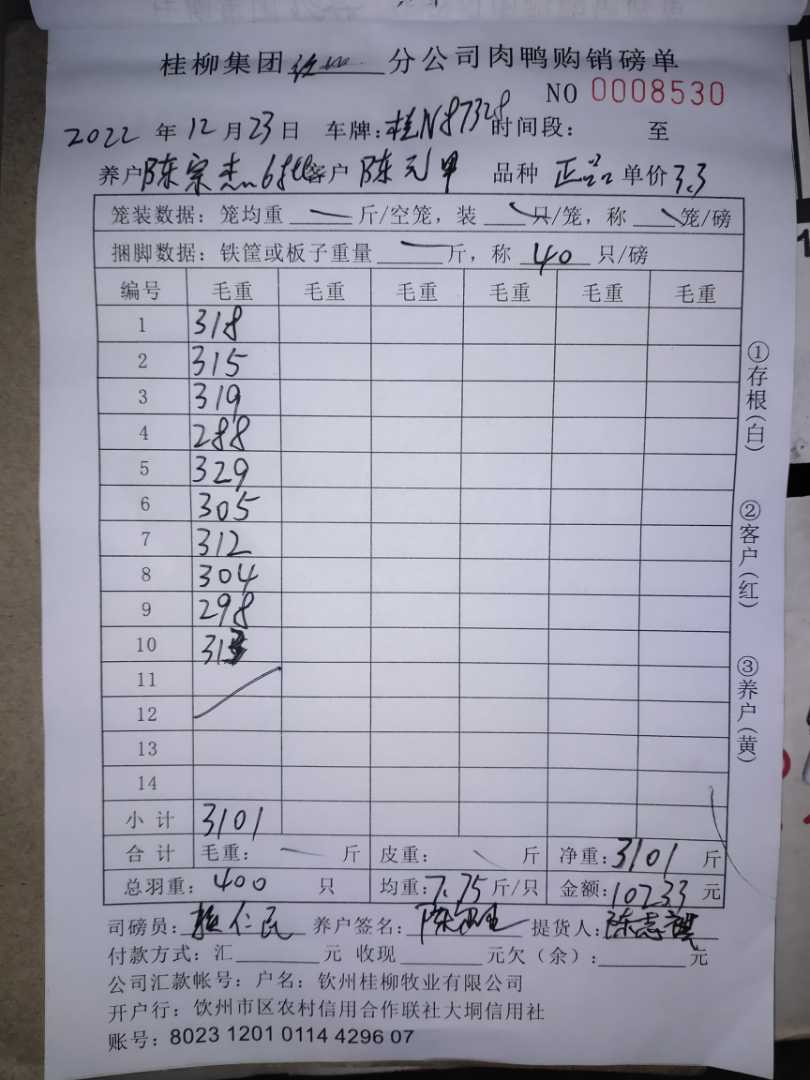 桂柳集团 分公司肉鸭购销磅单
NO 0008530
2022年12月23日 车牌:桂N87328时间段: 至
养户陈宗杰 客户 陈元甲 品种 正品 单价3.3
笼装数据:笼均重 — 斤/空笼,装 只/笼,称 笼/磅
捆脚数据:铁筐或板子重量 — 斤,称 40 只/磅
编号 毛重 毛重 毛重 毛重 毛重 毛重
1 318
2 315
3 319
4 288
5 329
6 305
7 312
8 304
9 298
10 313
11
12
13
14
小 计 3101
合 计 毛重: — 斤 皮重: 斤 净重:3101斤
总羽重: 400 只 均重:7.75斤/只 金额:10233元
司磅员: 仁民 养户签名:陈 提货人:陈志
付款方式:汇 元 收现 元欠(余): 元
公司汇款帐号:户名:钦州桂柳牧业有限公司
开户行:钦州市区农村信用合作联社大垌信用社
账号:8023 1201 0114 4296 07
①存根(白)
②客户(红)
③养户(黄)